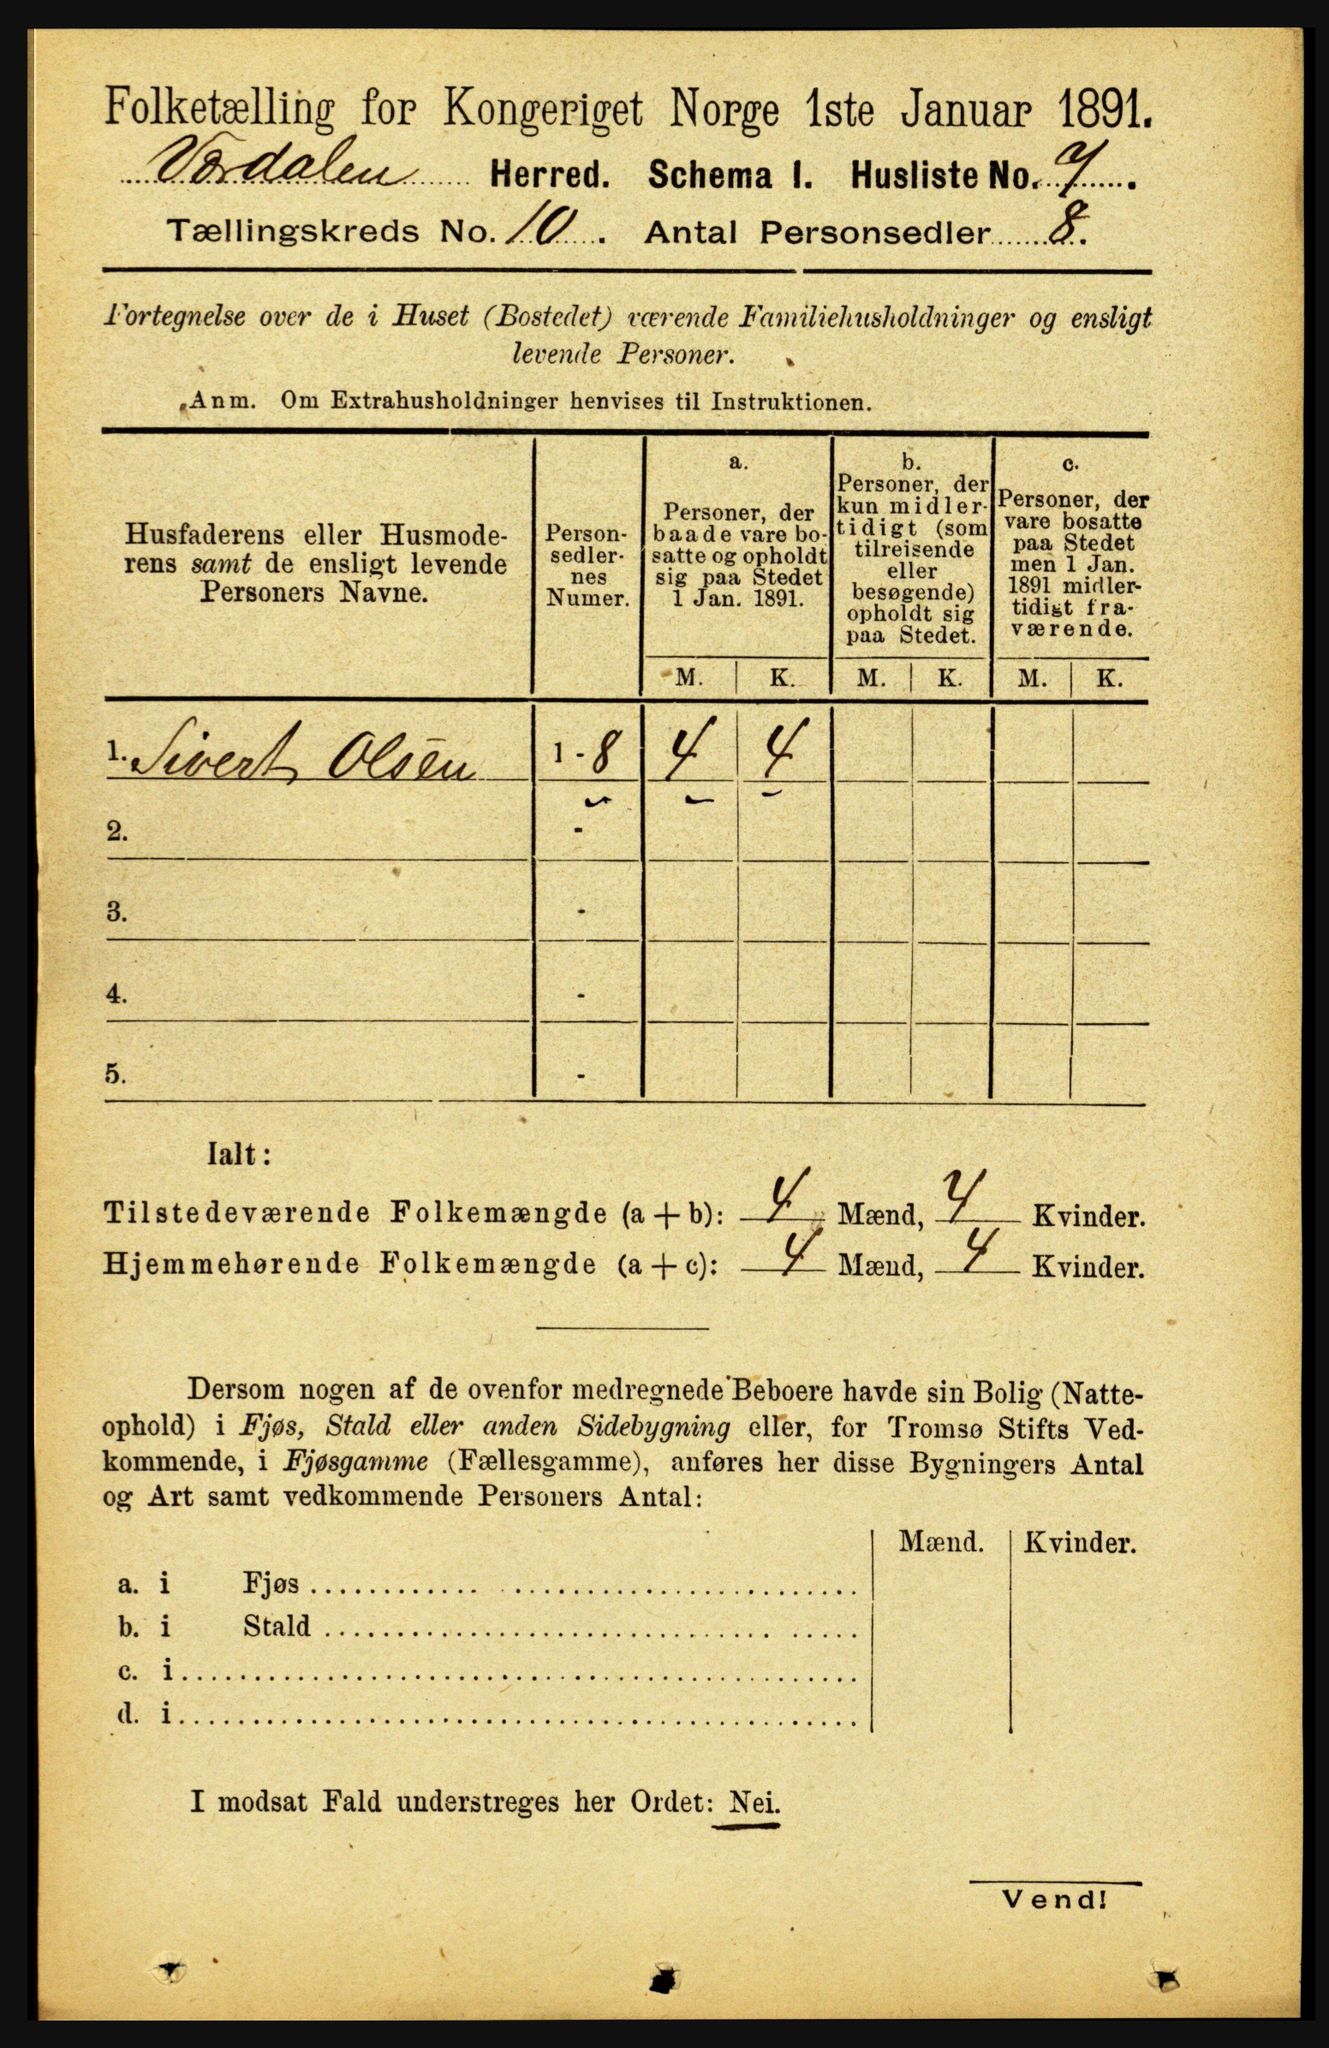 Folketælling for Kongeriget Norge 1ste Januar 1891.
Værdalen Herred. Schema 1. Husliste No. 7.
Tællingskreds No. 10. Antal Personsedler 8.
Fortegnelse over de i Huset (Bostedet) værende Familiehusholdninger og ensligt
levende Personer.
Anm. Om Extrahusholdninger henvises til Instruktionen.
Husfaderens eller Husmode-
rens samt de ensligt levende
Personers Navne.
Person-
sedler-
nes
Numer.
a.
Personer, der
baade vare bo-
satte og opholdt
sig paa Stedet
1 Jan. 1891.
b.
Personer, der
kun midler-
tidigt (som
tilreisende
eller
besøgende)
opholdt sig
paa Stedet.
c.
Personer, der
vare bosatte
paa Stedet
men 1 Jan.
1891 midler-
tidigt fra-
værende.
M. K. M. K. M. K.
1. Sivert Olsen 1 - 8 4 4
2. -
3. -
4. -
5. -
Ialt:
Tilstedeværende Folkemængde (a + b): 4 Mænd, 4 Kvinder.
Hjemmehørende Folkemængde (a + c): 4 Mænd, 4 Kvinder.
Dersom nogen af de ovenfor medregnede Beboere havde sin Bolig (Natte-
ophold) i Fjøs, Stald eller anden Sidebygning eller, for Tromsø Stifts Ved-
kommende, i Fjøsgamme (Fællesgamme), anføres her disse Bygningers Antal
og Art samt vedkommende Personers Antal:
Mænd. Kvinder.
a. i Fjøs
b. i Stald
c. i
d. i
I modsat Fald understreges her Ordet: Nei.
Vend!